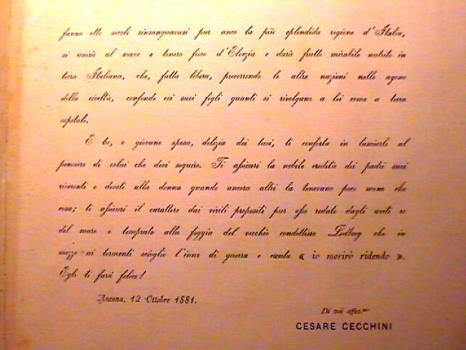 fanno allo svolt rinsanguavasi pur anco la più splendida regione d'Italia,
si unirà al soave e tenero fiore d'Elvezia e darà frutto mirabile nutrito in
terra Italiana, che, fatta libera, precorrendo le altre nazioni nello agone
della civiltà, confonde coi suoi figli quanti si rivolgono a lei come a terra
ospitale.
E tu, o giovane sposa, delizia dei tuoi, ti conforta in lasciarli al
pensiero di colui che devi seguire. Ti assicuri la nobile eredità dei padri suoi
riverenti e devoti alla donna quando ancora altri la tenevano poco meno che
cosa; ti assicuri il carattere dai virili propositi pur esso redato dagli
del mare e temprato alla foggia del vecchio condottiero che in
mezzo ai tormenti scioglie l'inno di guerra e esulta « io morirò ridendo ».
Egli ti farà felice!
Ancona, 12 Ottobre 1881.
Di voi affez.mo
CESARE CECCHINI